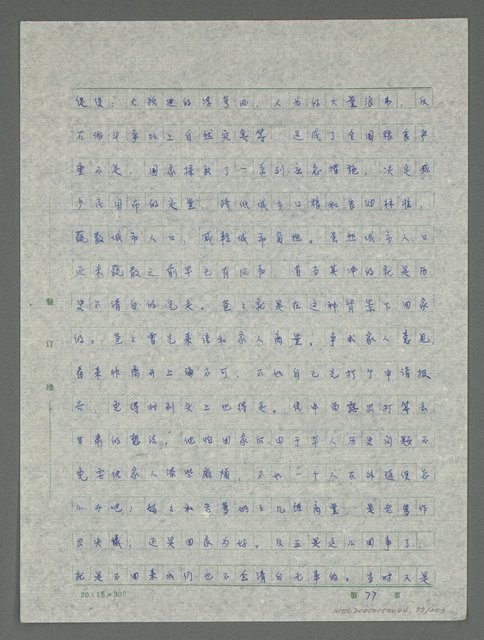 促使; 大跃进的浮夸风, 人为的大量浪费, 及
在俩斗争地上自然灾害等, 造成了全国粮食严
重不足, 国家採取了一系列应急措施, 决定减
少民用布的定量, 降低城乡口粮和食油标准,
疏散城市人口, 减轻城市负担。虽然城市人口
还未疏散之前早已有风声, 首当其冲的就是历
史不清白的先走。爸爸就是在这种背景下回家
的。爸爸曾先来信和家人商量: 争求家人意见
看来非离开上海不可, 不如自己先打了申请报
告, 免得挨到头上也得走。信中面露出打算去
甘肃的想法, 他怕回家后由于本人历史问题不
免要给家人添些麻烦, 不如一个人在外随便怎
么办吧! 妈妈和老爹奶奶几经商量, 是老爹作
出决议, 还是回家为好。反正是这么回事了,
就是不回来我们也不会清白无事的。当时又是
装
订
线
20×15=300
第 77 页